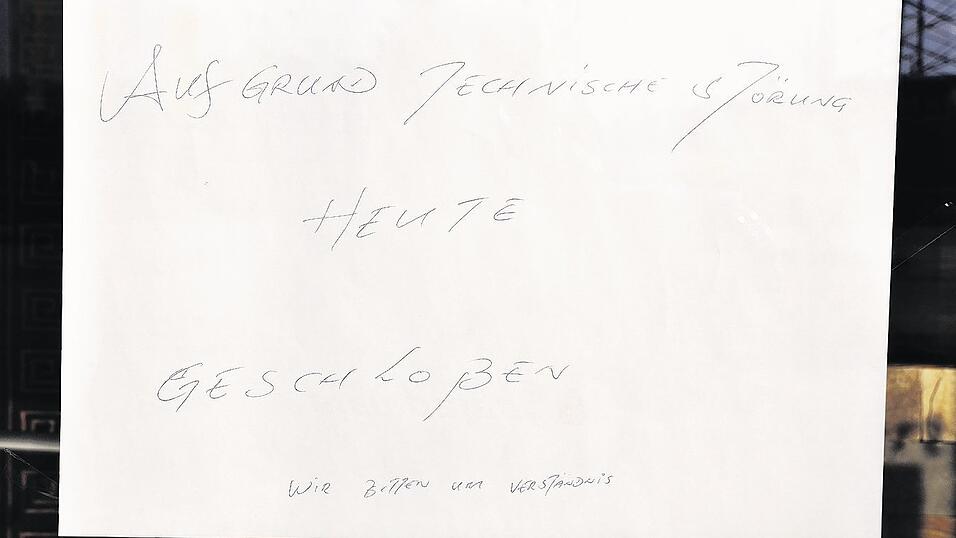 AUF GRUND TECHNISCHE STÖRUNG
HEUTE
GESCHLOßEN
WIR BITTEN UM VERSTÄNDNIS